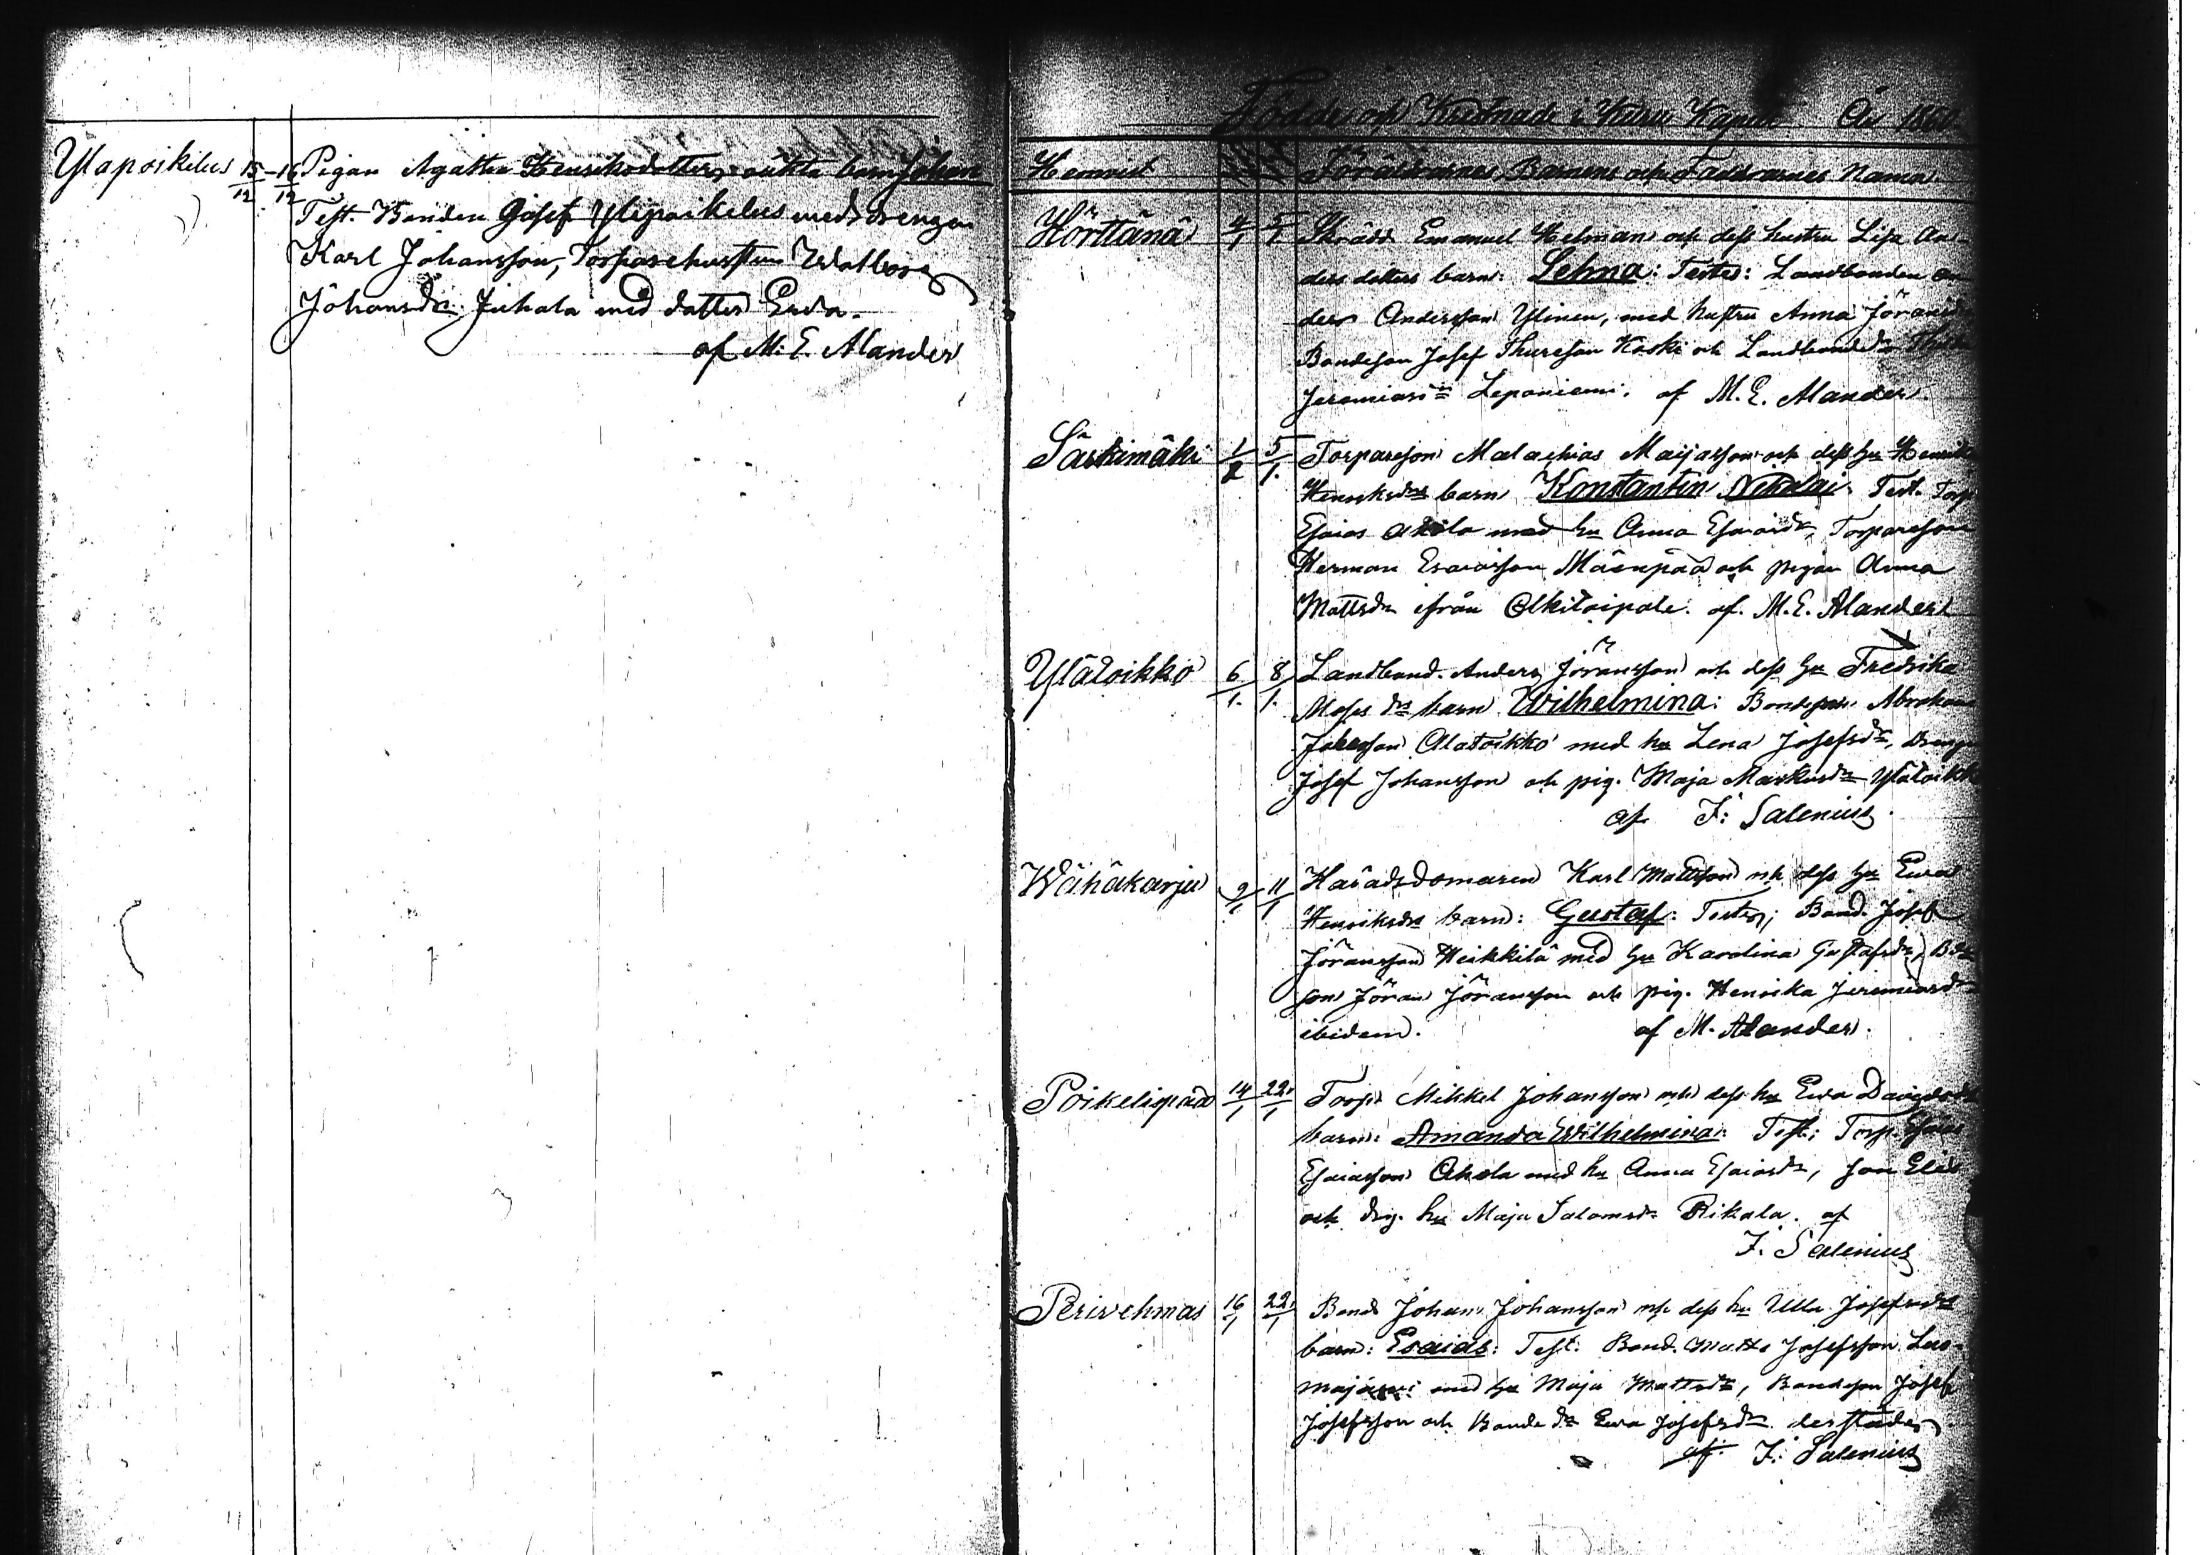 Ylapoikilus 15/12 - 16/12 Pigan Agatha Henriksdotters oäkta barn Johan
Test. Bonden Josef Ylipoikelus med drengen
Karl Johansson, Torparehustrun Walborg
Johansdr Juhala med dotter Ewa.
af M: E. Alander
Födde och Kristnade i Kapell År 1860
Hemvist Föräldrarnes, Barnens och Faddrarnes Namn.
Hörttänä 4/1 5/1 Skrädd Emanuel Helman och dess hustru Lisa An-
ders dotters barn: Selma: Testes: Landbonden An-
ders Andersson Ylinen, med hustru Anna Jöransdr
Bondeson Josef Thuresson Koski och Landbond dr
Jeremiasdr Leponiemi. af M. E. Alander.
Särkimäki 1/2 5/1. Torpareson Malachias Maijasson och dess hu Henrika
Henriksdrs barn Konstantin Nikolai. Test. Torp
Esaias Akola med hu Anna Esaiasdr, Torpareson
Herman Esaiasson Mäenpää och pigan Anna
Mattsdr ifrån . af. M. E. Alander
Ylätoikko 6/1. 8/1. Landbond. Anders Jöransson och dess hu Fredrika
Moses drs barn Wilhelmina: Abraham
Alatoikko med hu Lena Josefsdr, Dreng
Josef Johansson och pig. Maja Markusdr Ylätoikko
af F: Salenius.
Wähäkarju 9/1 11/1 Häradsdomaren Karl Mattsson och dess hu Ewa
Henriksdrs barn: Gustaf: Testes; Bond. Josef
Jöransson Heikkilä med hu Karolina Gustafsdr, Bde-
son Jöran Jöransson och pig. Henrika Jeremiasdr
ibidem. af M. Alander.
Poikelispää 14/1 22./1 Torp. Mikkel Johansson och dess hu Ewa Davidsdr
barn: Amanda Wilhelmina: Test; Torp. Esaias
Esaiasson Akola med hu Anna Esaiasdr, son Elis
och drg. hu Maja Salomsdr Rikala. af
F. Salenius
Perivehmas 16/1 22./1 Bond Johan Johansson och dess hu Ulla Josefsdrs
barn: Esaias: Test. Bond. Matts Josefsson Luo-
majärvi med hu Maja Mattsdr, Bondeson Josef
Josefsson och Bonde dr Ewa Josefsdr derstädes
af F: Salenius